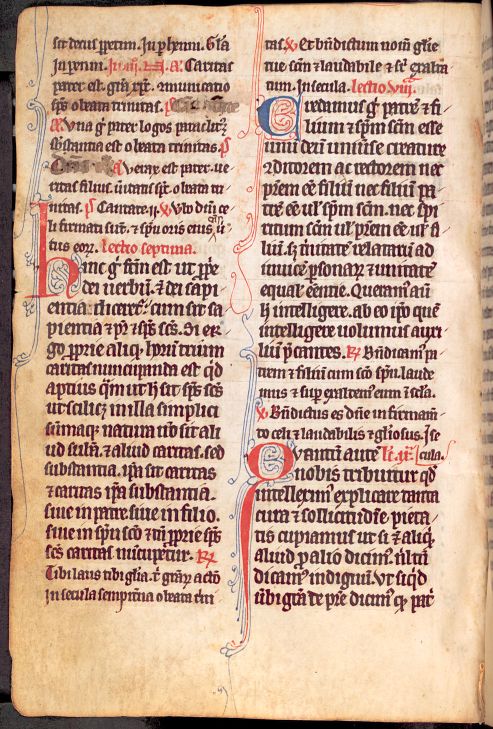 sit deus pretim. In phenni. Gla
In penni. In iii. N. A. Caritas
pater est. gra xpc. 9municatio
sps o beata trinitas. p
A Vna g pater logos paraclitz
substantia est o beata trinitas. p
A Verax est pater. ue
ritas filius. ueritas sps. o beata tri
nitas. p Cantate. ii. v Vbo dni ce
li firmati sut. & spu oris eius oms uir
tus eorz. Lectio septima.
Hinc g stim est ut ppe
dei uerbu. & dei sapi
entia diceret. cum sit sa
pientia & pr & sps scs. Si er
go pprie aliqs horum trium
caritas nuncupanda est. qd
aptius qm ut h sit sps scs
ut scilicz in illa simplici
sumaqz natura no sit ali
ud subia. & aliud caritas. sed
substantia. ipa sit caritas
& caritas ipa substantia.
siue in patre siue in filio.
siue in spu sco & tn pprie sps
scs caritas nuncupetur. R
Tibi laus tibi glia. t grarz actio
in secula sempitna o beata tni
tas. v Et bndictum nom glie
tue scm & laudabile & sup exalta
tum. In secula. Lectio viii.
Credamus g patre & fi
lium & spm scm esse
unu deu uniuse creature
9ditorem ac rectorem nec
prem ee filiu nec filiu pa
tre ee ul spm scm. nec spi
ritum scm ul prem ee ul fi
liu. sz tnitate relatarum ad
inuice psonarz & unitate
equal eentie. Queram9 au
h intelligere. ab eo ipo que
intelligere uolumus auxi
lium pcantes. R Bndicam9 pa
trem & filium cum sco spu. laude
mus & sup exaltem9 eum i scla.
v Bndictus es dne in firmam
to celi & laudabilis & gliosus. I se
cula.
Quantu aute lc. ix.
a nobis tribuitur qd
intellexim9 explicare tanta
cura & sollicitudine pieta
tis cupiamus ut si & aliqd
aliud p alio dicim9. nl tn
dicam9 indignu. ut siqd
ubi gra de pre dicim9 qd patri